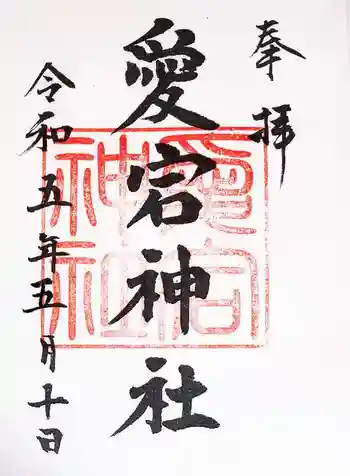 奉拝
愛宕神社
令和五年五月十日
愛宕
神社